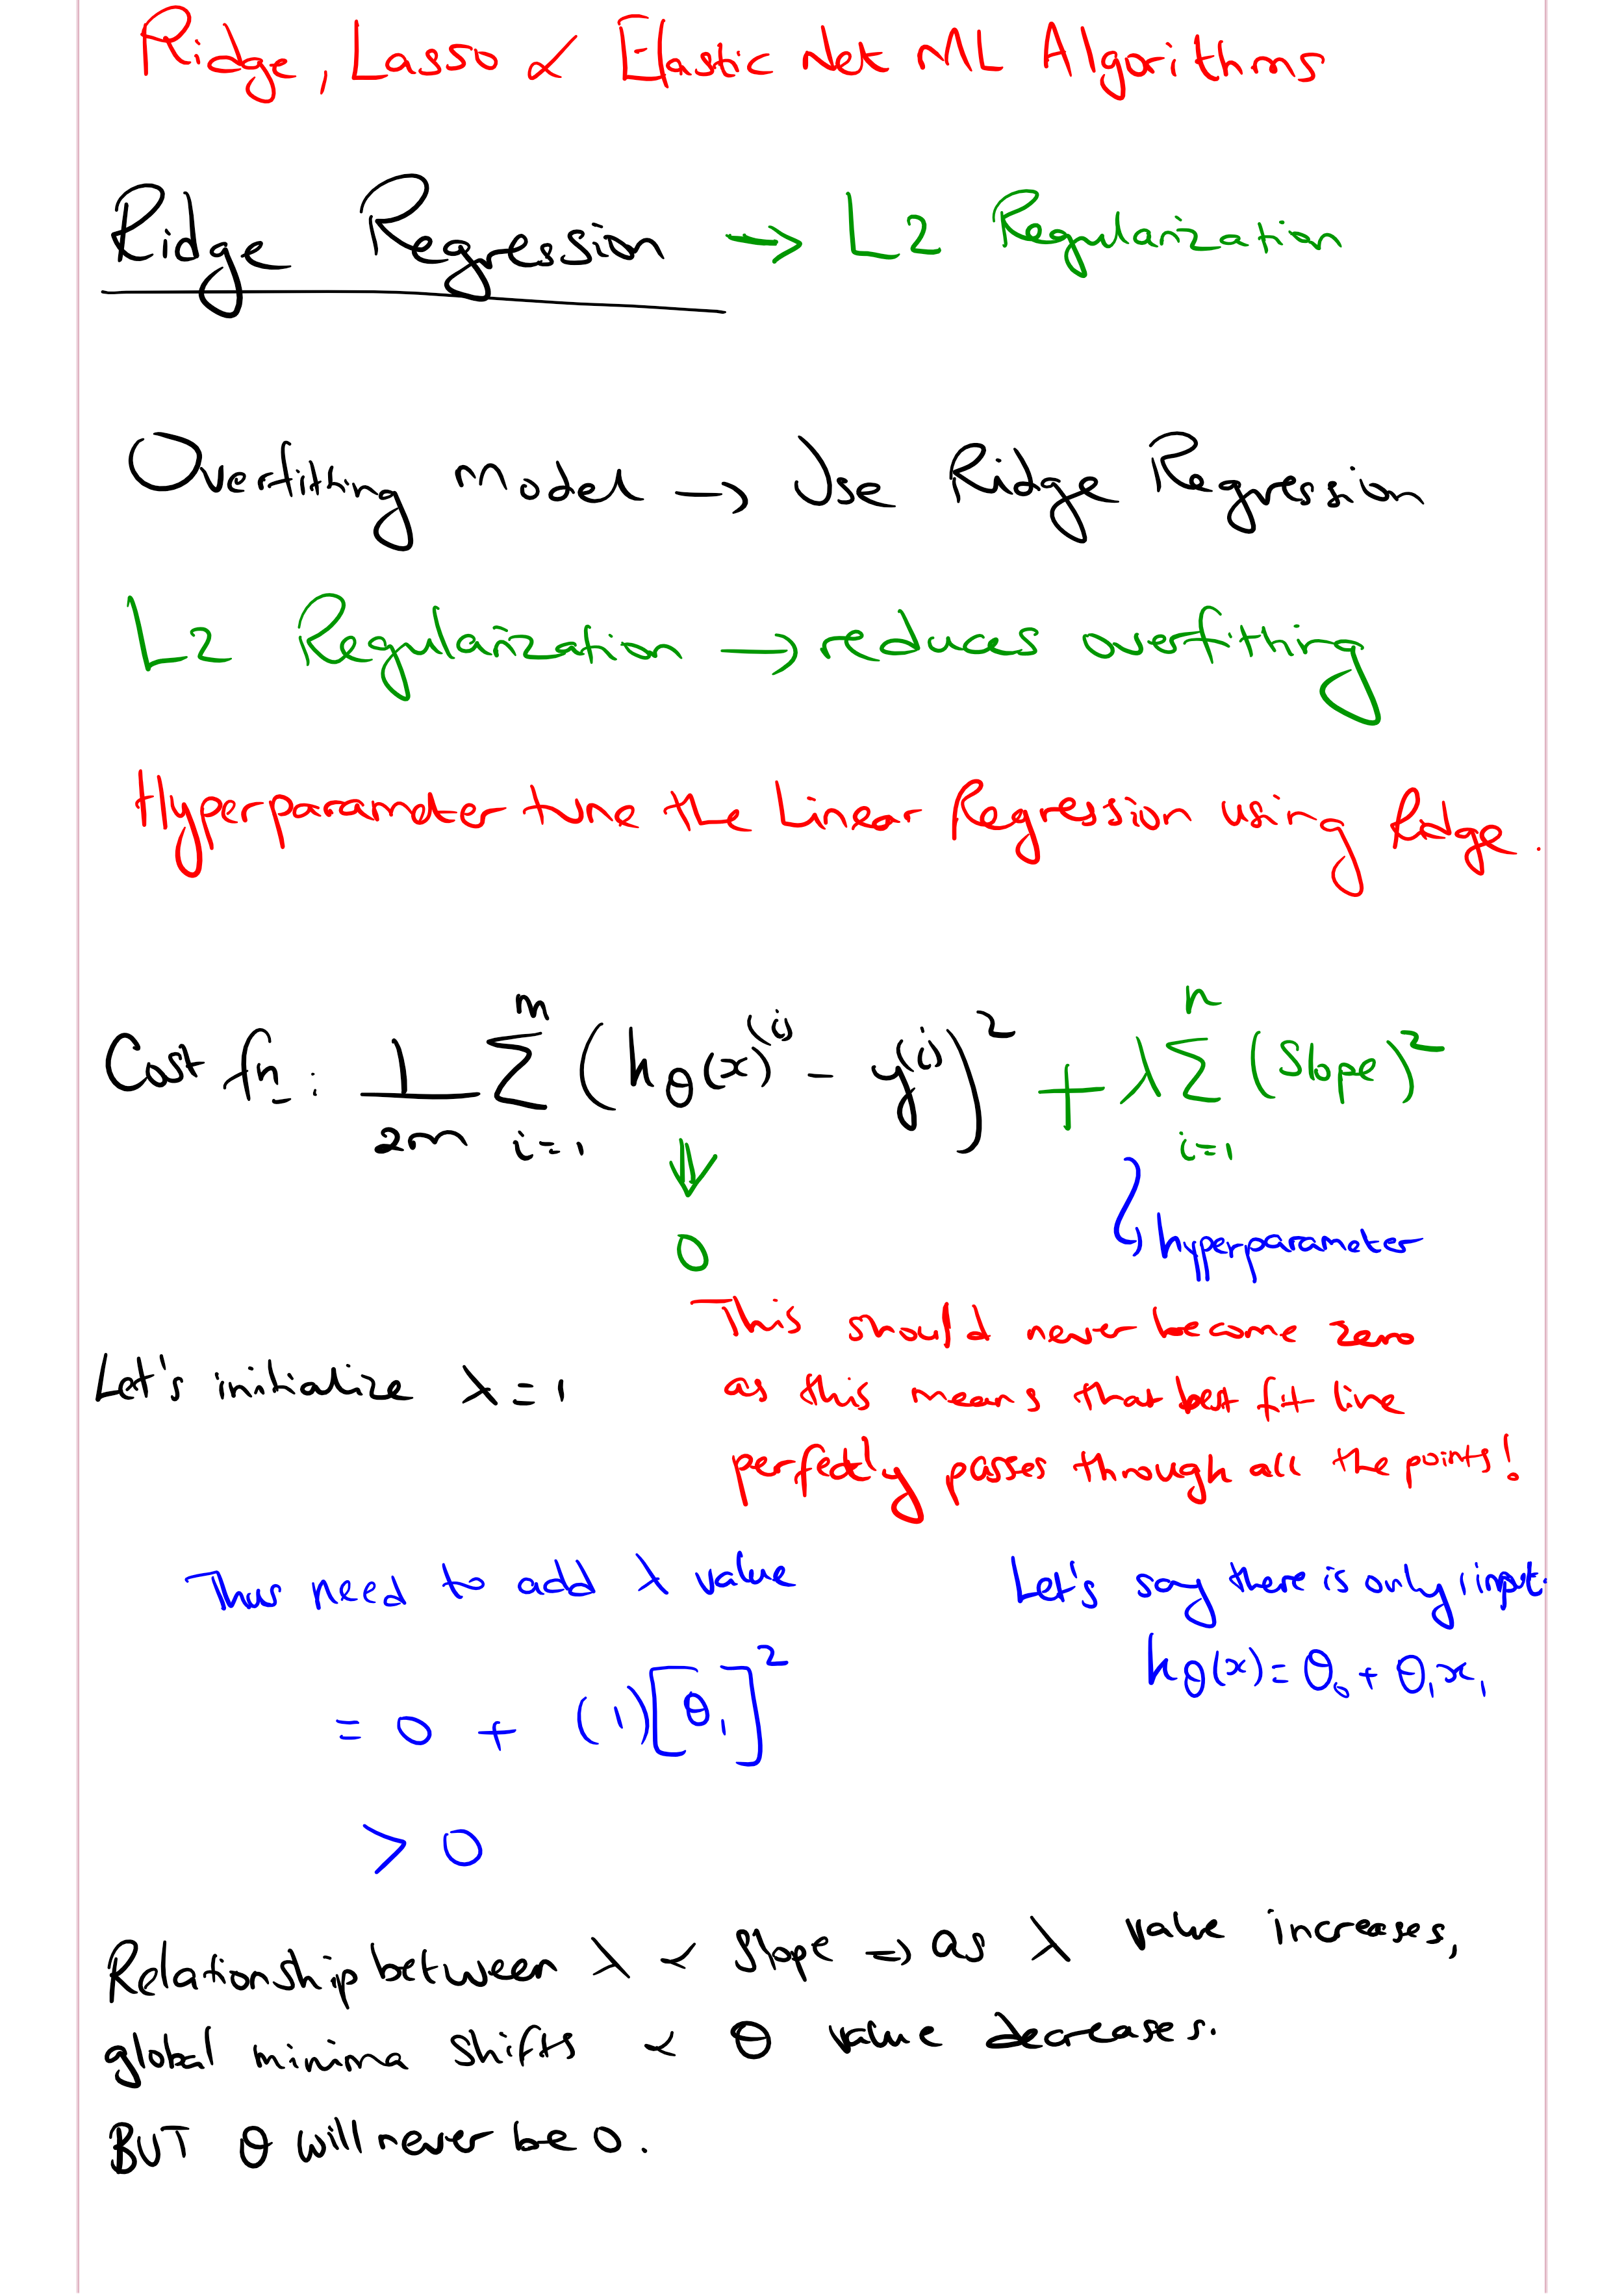 Ridge, Lasso & Elastic Net ML Algorithms
Ridge Regression → L2 Regularization
Overfitting model → Use Ridge Regression
L2 Regularization → reduces overfitting
Hyperparameter tune the Linear Regression using Ridge.
Cost fn: 1/2m Σ_{i=1}^{m} (hθ(x)^(i) - y^(i))² + λ Σ_{i=1}^{n} (Slope)²
⇓
0
↳ hyperparameter
This should never become zero
as this means that best fit line
perfectly passes through all the points!
Let's initialize λ = 1
Thus need to add λ value
Let's say there is only 1 input.
hθ(x) = θ₀ + θ₁x₁
= 0 + (1)[θ₁]²
> 0
Relationship between λ & slope ⇒ as λ value increases,
global minima shifts & θ value decreases.
BUT θ will never be 0.